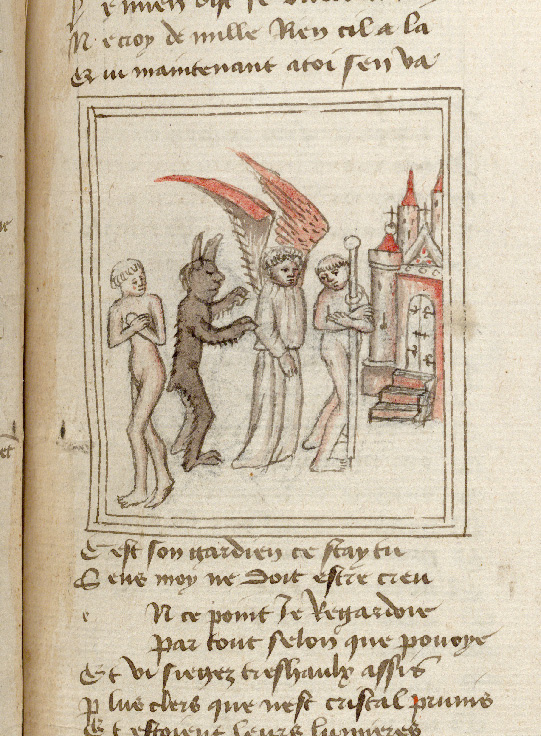 N ecroy de mille Rien cil a la
Et m maintenant atoi sen va
C est son gardien ce scay tu
S ens moy ne Doit estre creu
e N ce point Je Regardoie
Par tout selon que pouoye
Et vi sieges treshaulx assis
P lus clers que nest cristal prums
Et estoient leurs lumieres
et